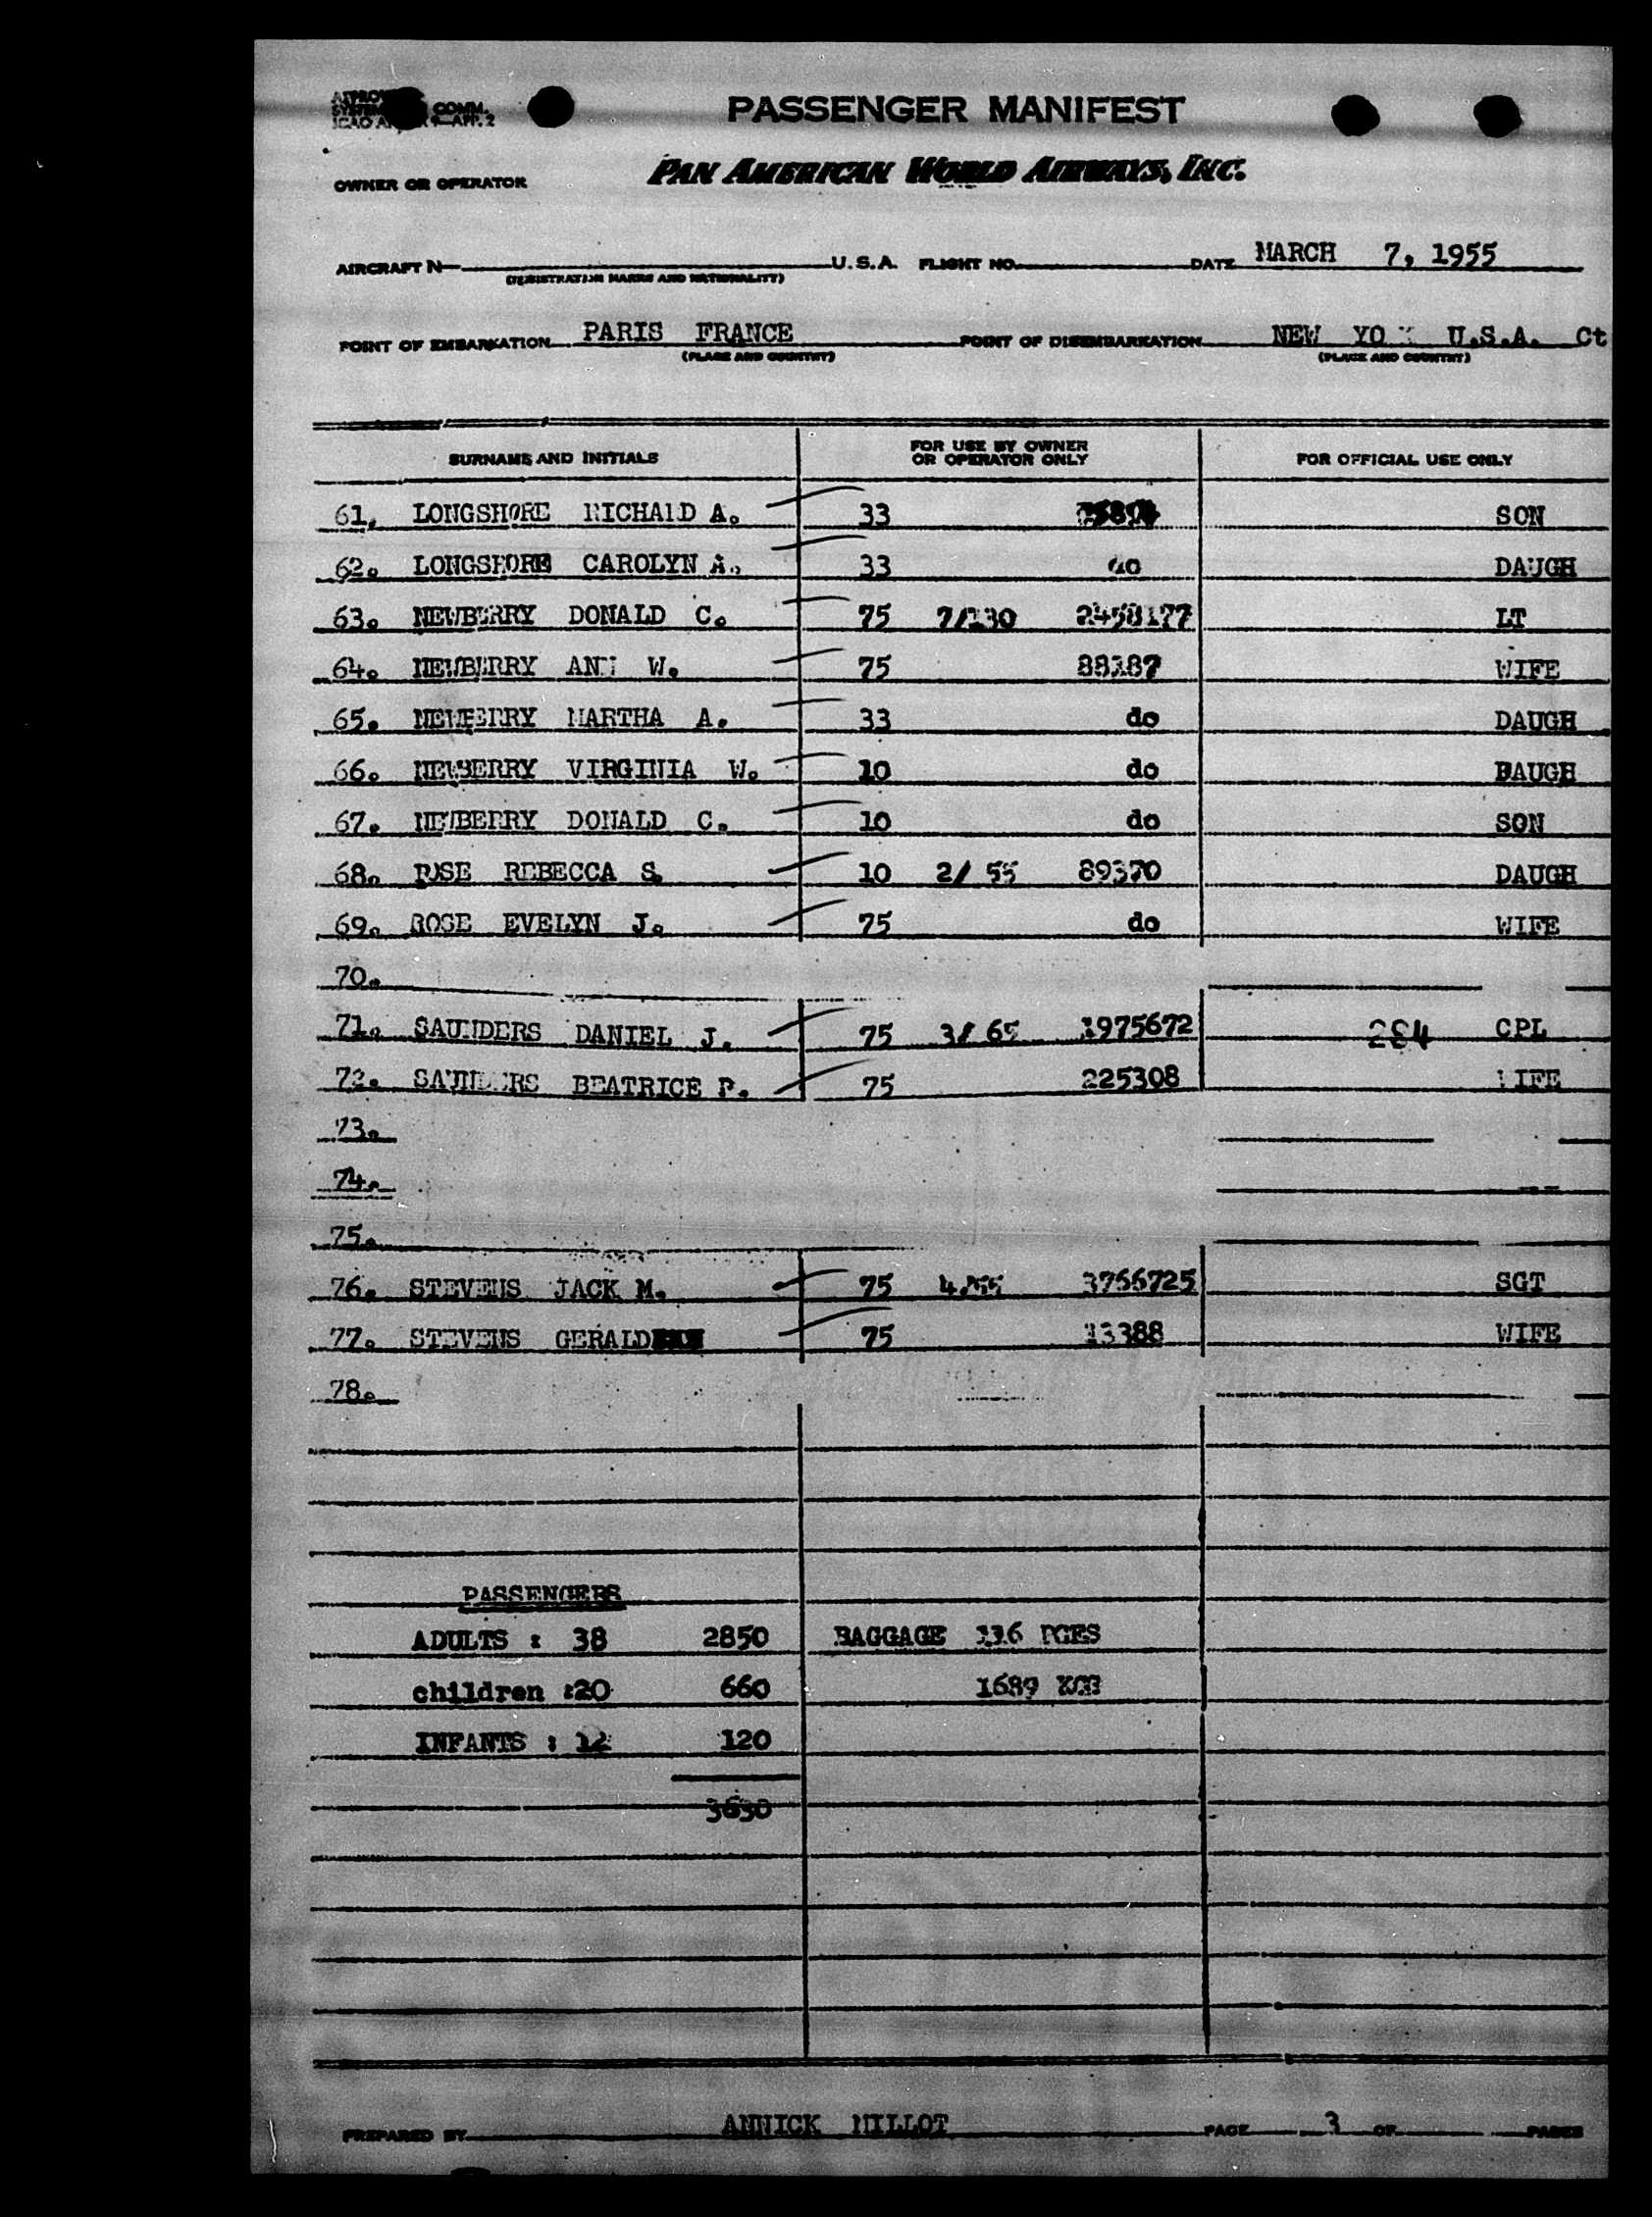 COMM.
APP. 2
PASSENGER MANIFEST
OWNER OR OPERATOR PAN AMERICAN WORLD AIRWAYS, INC.
AIRCRAFT N U.S.A. FLIGHT NO. DATE MARCH 7, 1955
(REGISTRATION MARKS AND NATIONALITY)
POINT OF EMBARKATION PARIS FRANCE POINT OF DISEMBARKATION NEW YO U.S.A. Ct
(PLACE AND COUNTRY) (PLACE AND COUNTRY)
SURNAME AND INITIALS FOR USE BY OWNER OR OPERATOR ONLY FOR OFFICIAL USE ONLY
61. LONGSHORE RICHARD A. 33 SON
62. LONGSHORE CAROLYN A. 33 do DAUGH
63. NEWBERRY DONALD C. 75 7/130 2458177 LT
64. NEWBERRY ANN W. 75 88187 WIFE
65. NEWBERRY MARTHA A. 33 do DAUGH
66. NEWBERRY VIRGINIA W. 10 do DAUGH
67. NEWBERRY DONALD C. 10 do SON
68. ROSE REBECCA S. 10 2/ 55 89370 DAUGH
69. ROSE EVELYN J. 75 do WIFE
70.
71. SAUNDERS DANIEL J. 75 3/ 65 1975672 284 CPL
72. SAUNDERS BEATRICE P. 75 225308 WIFE
73.
74.
75.
76. STEVENS JACK M. 75 3766725 SGT
77. STEVENS GERALD 75 13388 WIFE
78.
PASSENGERS
ADULTS : 38 2850 BAGGAGE 136 PCES
children :20 660 1689 KGS
INFANTS : 12 120
3630
PREPARED BY ANNICK MILLOT PAGE 3 OF PAGES